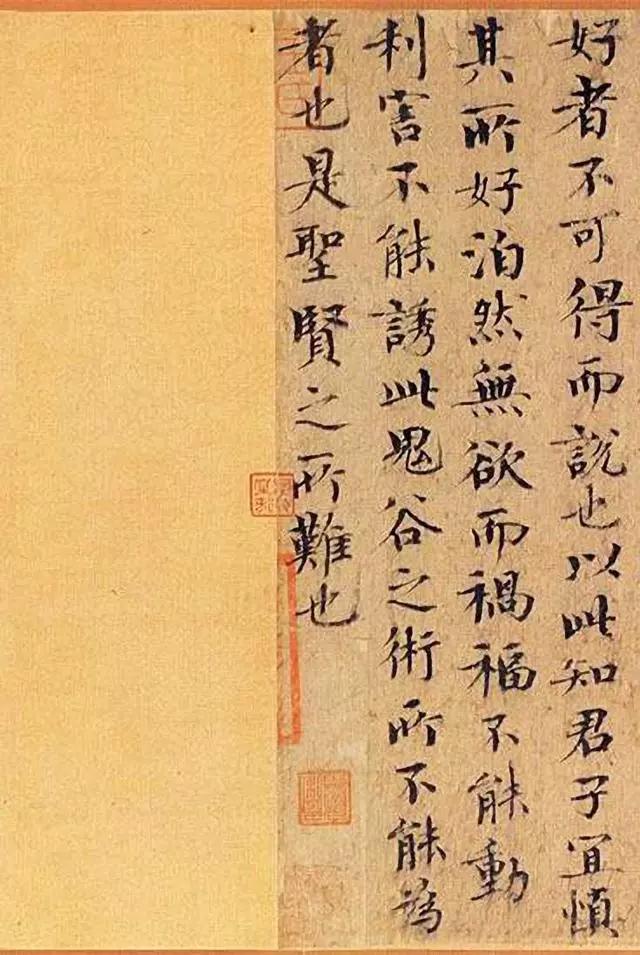 好者不可得而説也以此知君子宜慎
其所好泊然無欲而禍福不能動
利害不能誘此鬼谷之術所不能為
者也是聖賢之所難也